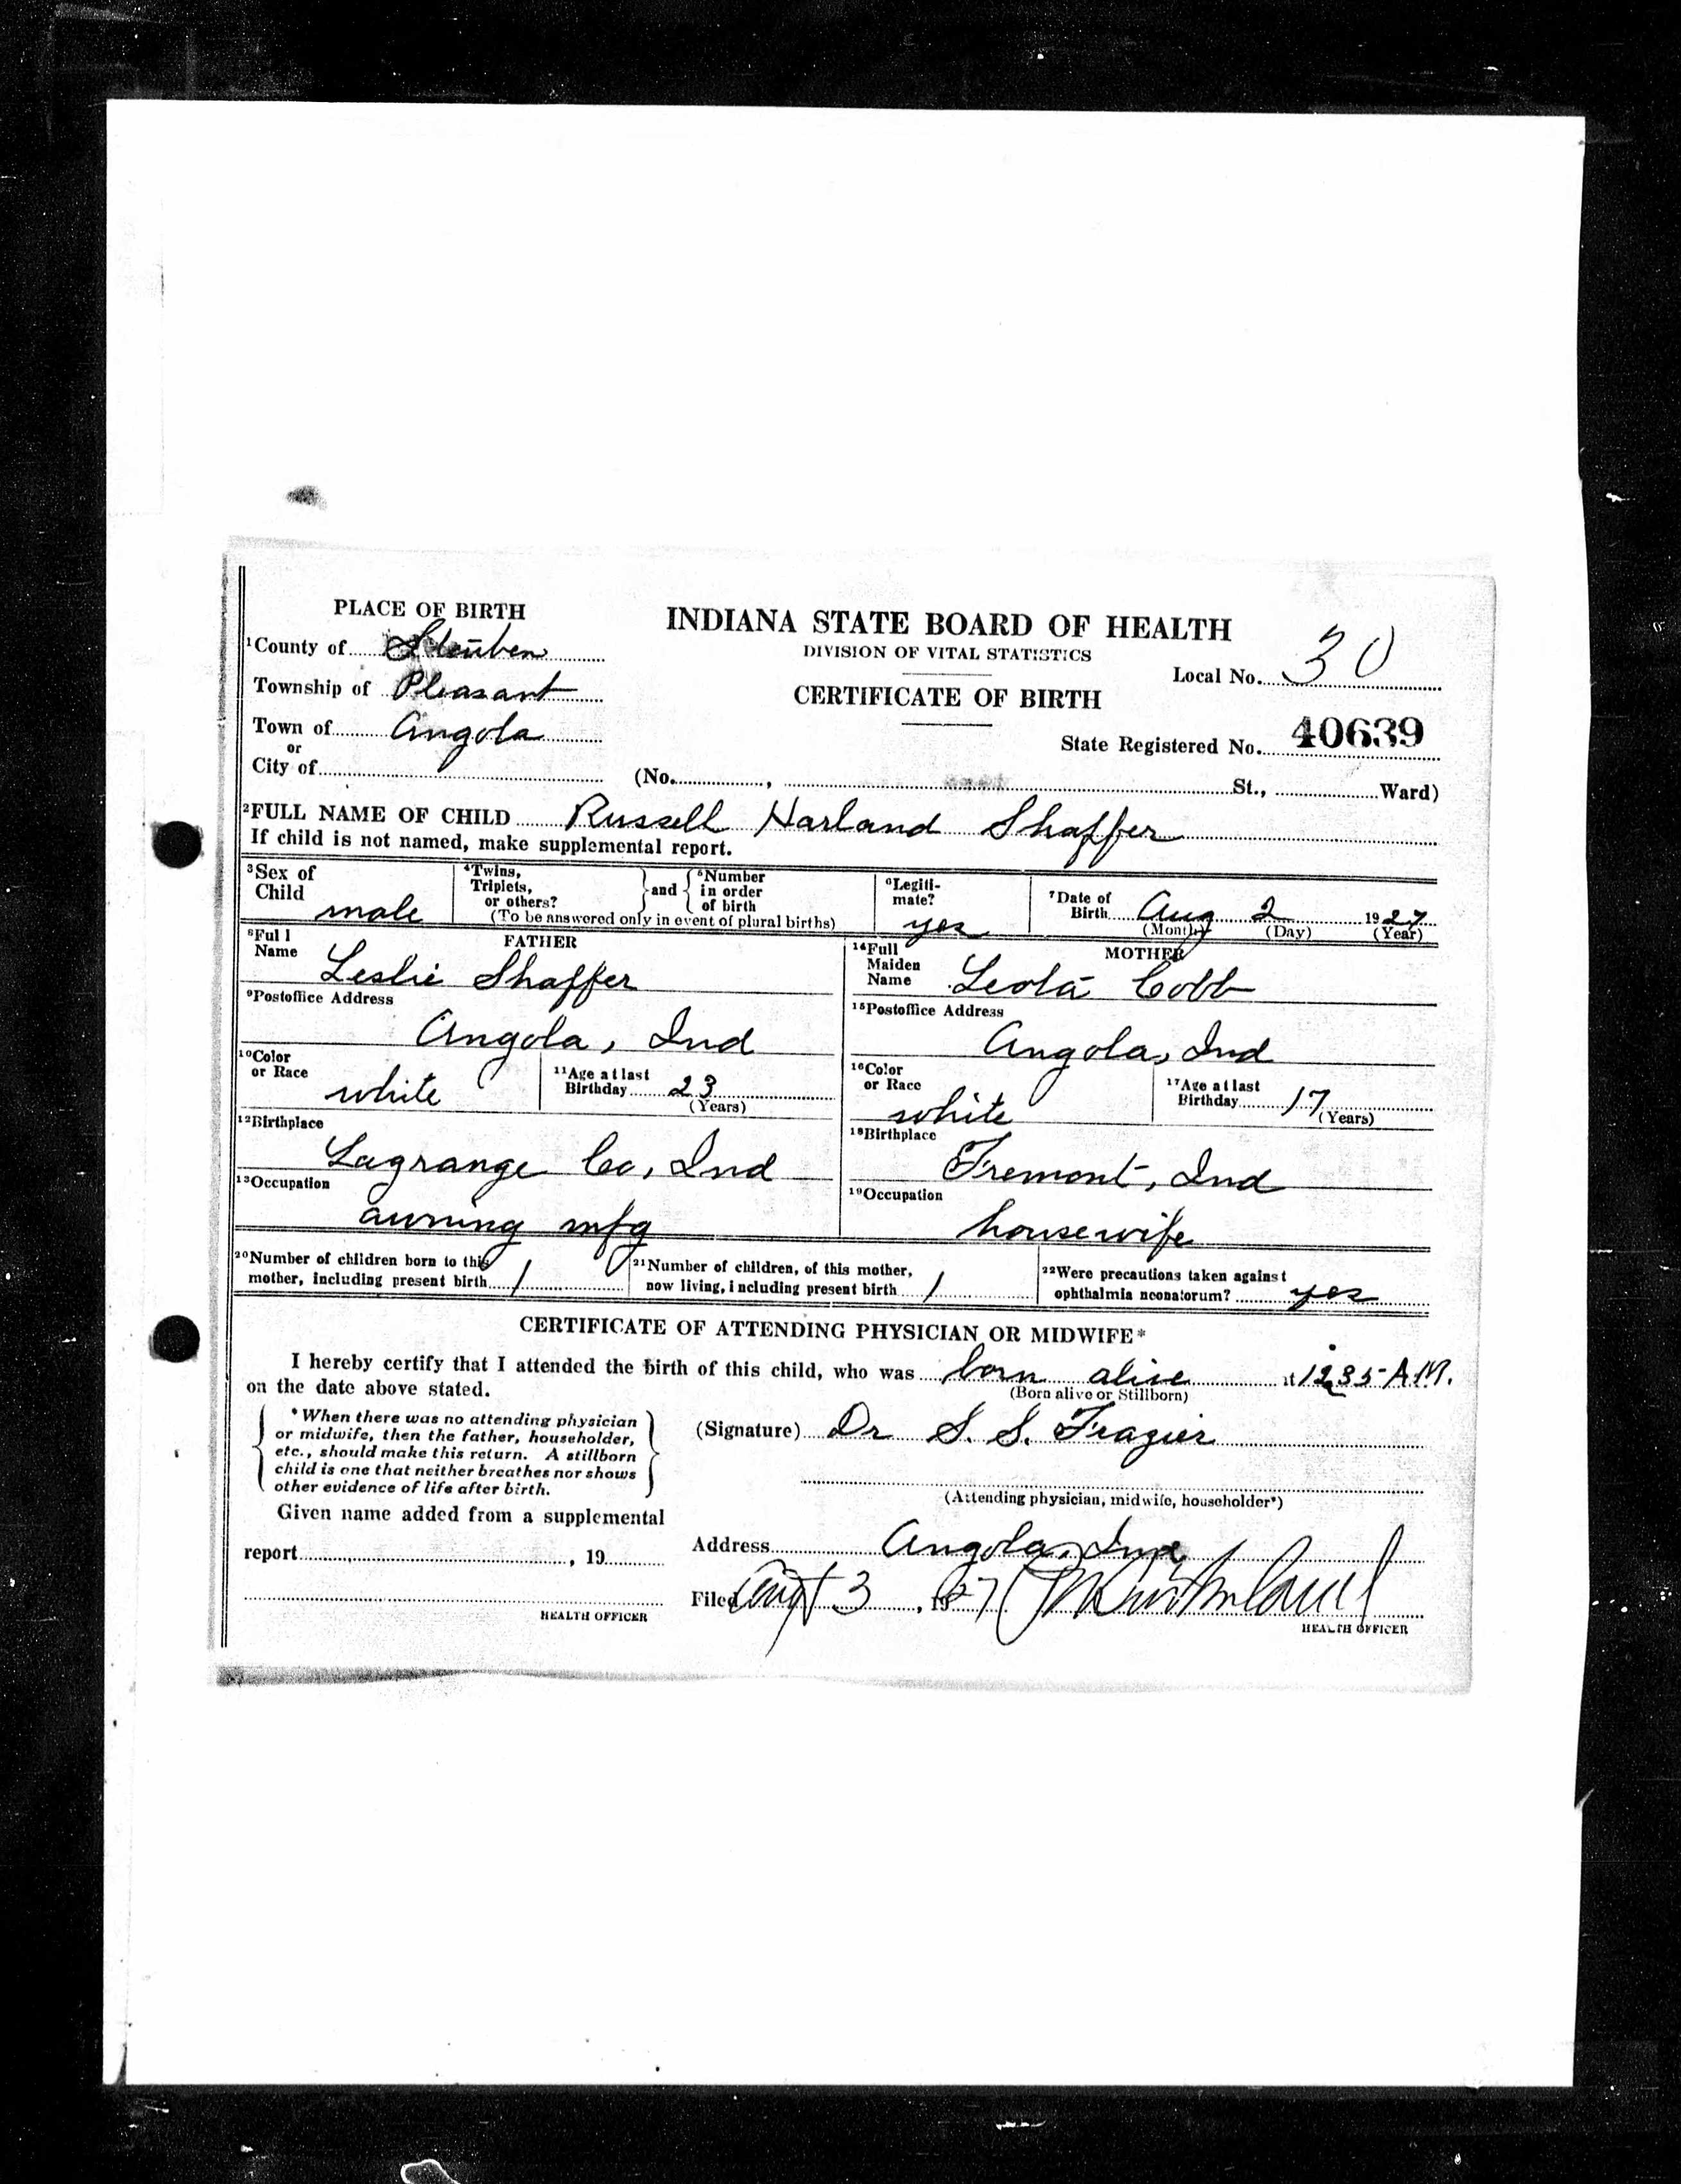 PLACE OF BIRTH
INDIANA STATE BOARD OF HEALTH
DIVISION OF VITAL STATISTICS
CERTIFICATE OF BIRTH
1County of Steuben
Township of Pleasant
Town of Angola
or
City of
Local No. 30
State Registered No. 40639
(No. , St., Ward)
2FULL NAME OF CHILD Russell Harland Shaffer
If child is not named, make supplemental report.
3Sex of Child male
4Twins, Triplets, or others? and 5Number in order of birth
(To be answered only in event of plural births)
6Legiti-mate? yes
7Date of Birth Aug 2 1927
(Month) (Day) (Year)
FATHER
8Full Name Leslie Shaffer
9Postoffice Address
Angola, Ind
10Color or Race white
11Age at last Birthday 23 (Years)
12Birthplace
Lagrange Co, Ind
13Occupation
awning mfg
MOTHER
14Full Maiden Name Leota Cobb
15Postoffice Address
Angola, Ind
16Color or Race white
17Age at last Birthday 17 (Years)
18Birthplace
Fremont, Ind
19Occupation
housewife
20Number of children born to this mother, including present birth 1
21Number of children, of this mother, now living, including present birth 1
22Were precautions taken against ophthalmia neonatorum? yes
CERTIFICATE OF ATTENDING PHYSICIAN OR MIDWIFE*
I hereby certify that I attended the birth of this child, who was born alive at 1235 A.M.
(Born alive or Stillborn)
on the date above stated.
*When there was no attending physician
or midwife, then the father, householder,
etc., should make this return. A stillborn
child is one that neither breathes nor shows
other evidence of life after birth.
(Signature) Dr S. S. Frazier
(Attending physician, midwife, householder*)
Given name added from a supplemental
report , 19
HEALTH OFFICER
Address Angola, Ind
Filed Aug 3, 1927
HEALTH OFFICER